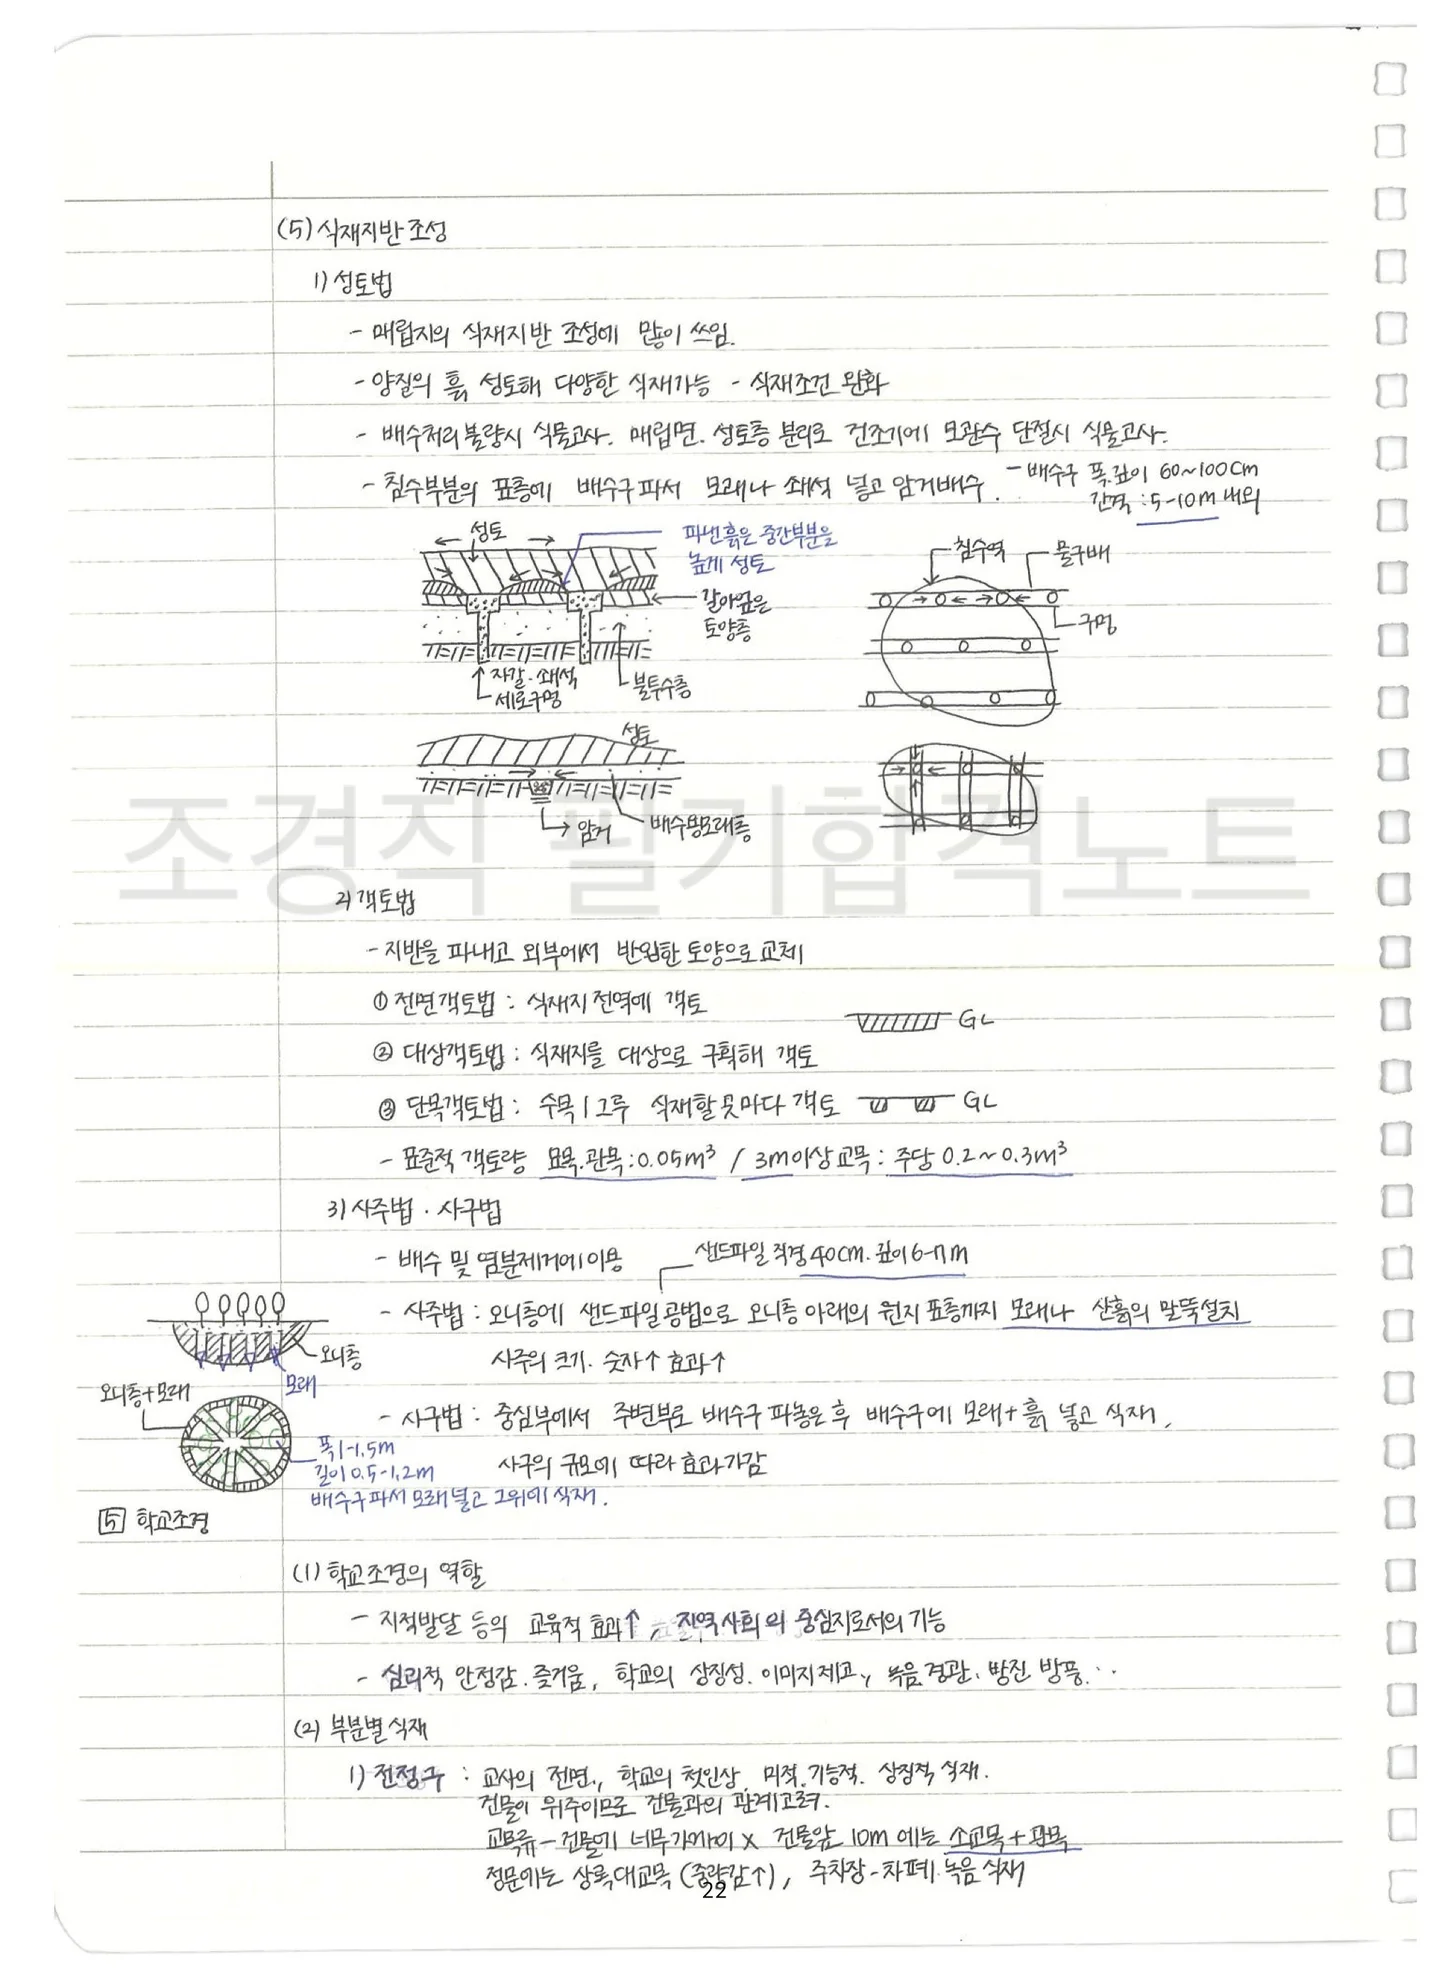 (5) 식재지반 조성
1) 성토법
- 매립지의 식재지반 조성에 많이 쓰임.
- 양질의 흙 성토해 다양한 식재가능 - 식재조건 완화
- 배수처리 불량시 식물고사. 매립면. 성토층 분리로 건조기에 모관수 단절시 식물고사.
- 침수부분의 표층에 배수구 파서 모래나 쇄석 넣고 암거배수. - 배수구 폭.깊이 60~100cm
간격 : 5-10m 내외
성토
파낸흙은 중간부분을
높게 성토
갈아엎은
토양층
자갈·쇄석
세로구멍
불투수층
침수역
물구배
구멍
성토
암거
배수용모래층
조경직 필기합격노트
2) 객토법
- 지반을 파내고 외부에서 반입한 토양으로 교체
① 전면객토법 : 식재지 전역에 객토
GL
② 대상객토법 : 식재지를 대상으로 구획해 객토
③ 단목객토법 : 수목 1그루 식재할 곳마다 객토
GL
- 표준적 객토량 묘목.관목 : 0.05m³ / 3m이상 교목 : 주당 0.2~0.3m³
3) 사주법 · 사구법
- 배수 및 염분제거에 이용
샌드파일 직경 40cm. 깊이 6-7m
- 사주법 : 오니층에 샌드파일공법으로 오니층 아래의 원지 표층까지 모래나 산흙의 말뚝설치
사주의 크기. 숫자↑ 효과↑
오니층
모래
오니층+모래
- 사구법 : 중심부에서 주변부로 배수구 파놓은 후 배수구에 모래+흙 넣고 식재.
사구의 규모에 따라 효과가감
폭 1-1.5m
깊이 0.5-1.2m
배수구 파서 모래 넣고 그위에 식재.
5 학교조경
(1) 학교조경의 역할
- 지적발달 등의 교육적 효과↑, 지역사회의 중심지로서의 기능
- 심리적 안정감. 즐거움, 학교의 상징성. 이미지제고, 녹음.경관. 방진 방풍...
(2) 부분별 식재
1) 전정구 : 교사의 전면, 학교의 첫인상. 미적.기능적. 상징적 식재.
건물이 위주이므로 건물과의 관계고려.
교목류 - 건물에 너무가까이 x 건물앞 10m 에는 소교목+관목
정문에는 상록대교목 (중량감↑), 주차장-차폐.녹음 식재
22